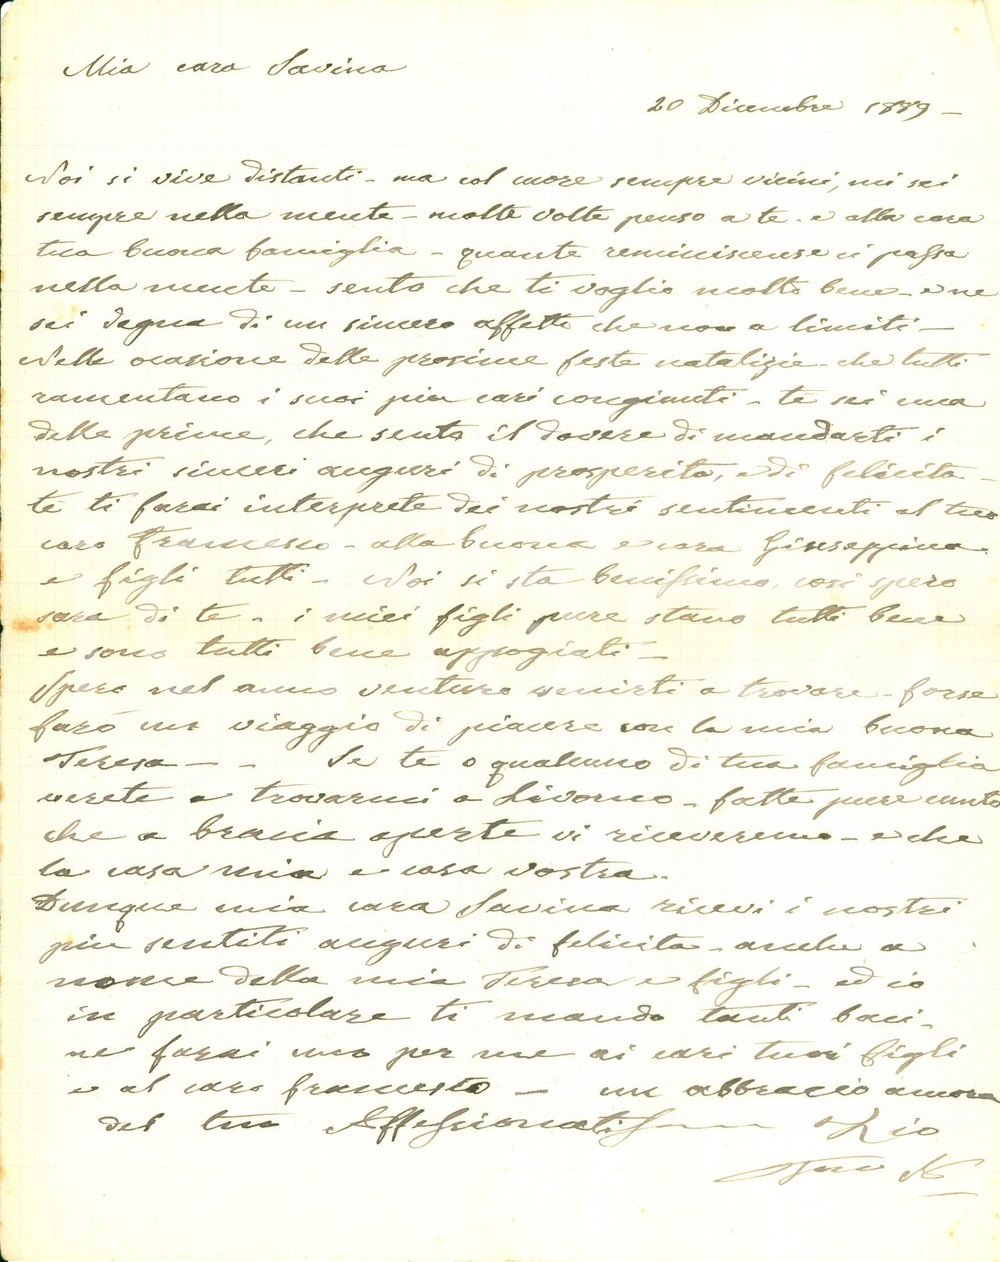 Mia cara Savina
20 Dicembre 1889 -
Noi si vive distanti - ma col core sempre vicini, mi sei
sempre nella mente - molte volte penso a te - e alla cara
tua buona famiglia - quante reminiscense ci passa
nella mente - sento che ti voglio molto bene - e ne
sei degna di un sincero affetto che non a limiti -
Nelle ocasione delle prosime feste natalizie - che tutti
ramentano i suoi piu cari congiunti - te sei una
delle prime, che sento il dovere di mandarti i
nostri sinceri auguri di prosperita, e di felicita -
te ti farai interprete dei nostri sentimenti al tuo
caro Francesco - alla buona e cara Giuseppina -
e figli tutti - Noi si sta benissimo, cosi spero
sara di te - i miei figli pure stano tutti bene
e sono tutti bene appogiati -
Spero nel anno venturo venirti a trovare - forse
faró un viaggio di piacere con la mia buona
Teresa - - Se te o qualcuno di tua famiglia
verete a trovarmi a Livorno - fatte pure conto
che a bracia aperte vi riceveremo - e che
la casa mia e casa vostra.
Dunque mia cara Savina ricevi i nostri
piu sentiti auguri di felicita - anche a
nome della mia Teresa e figli - ed io
in particolare ti mando tanti baci -
ne farai uno per me ai cari tuoi figli
e al caro francesco - un abbracio ancora
del tuo Affessionatiss Zio